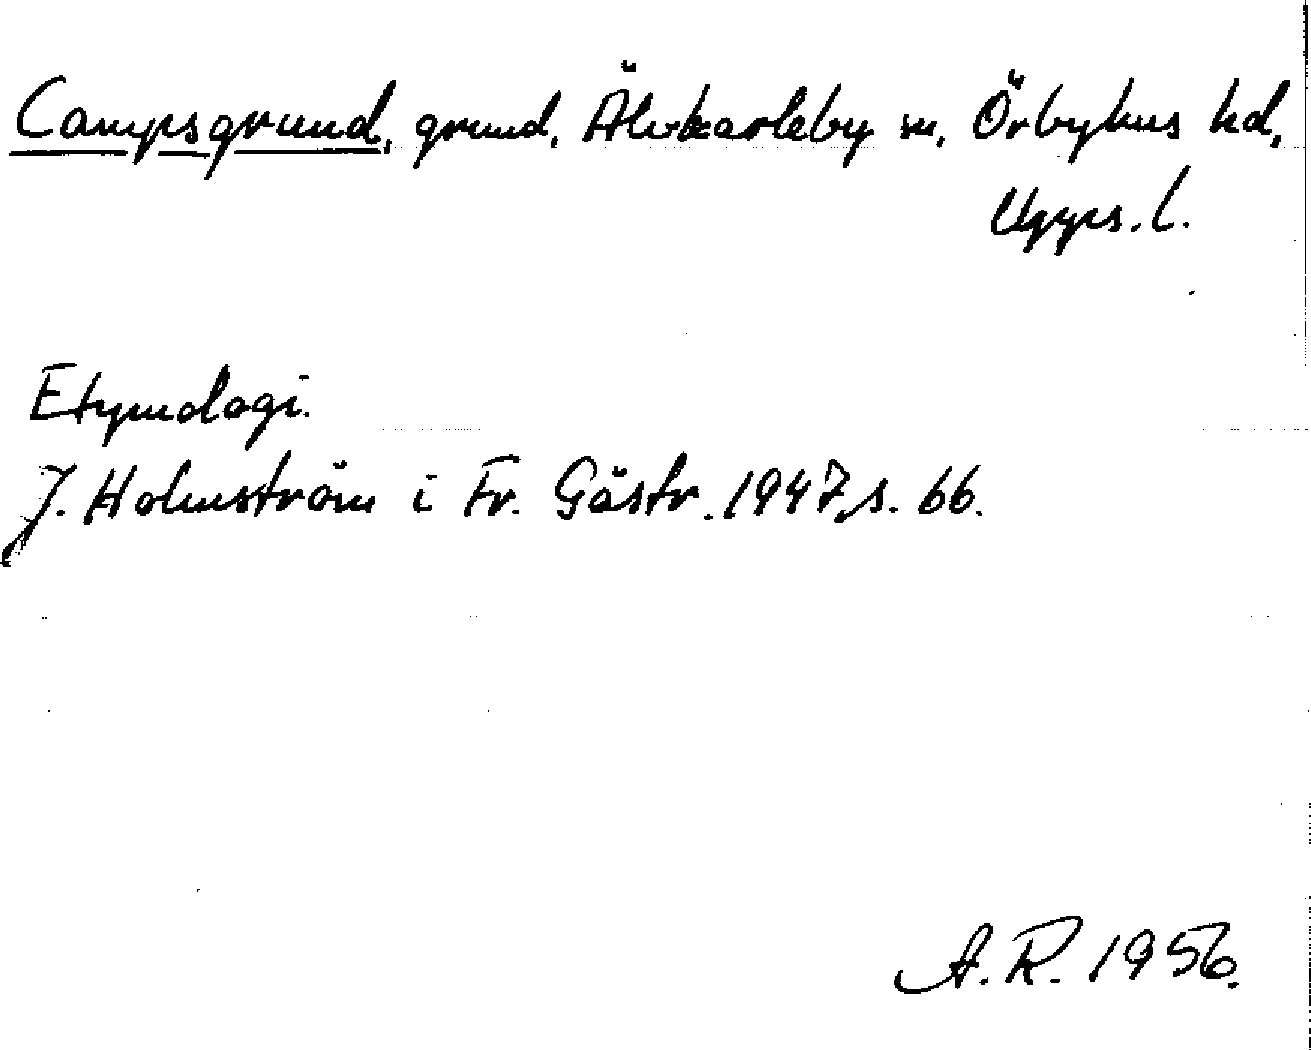 Campsgrund, grund, Älvkarleby sn, Örbyhus hd,
Upps. l.
Etymologi.
J. Holmström i Fr. Gästr. 1947, s. 66.
A.R. 1956.